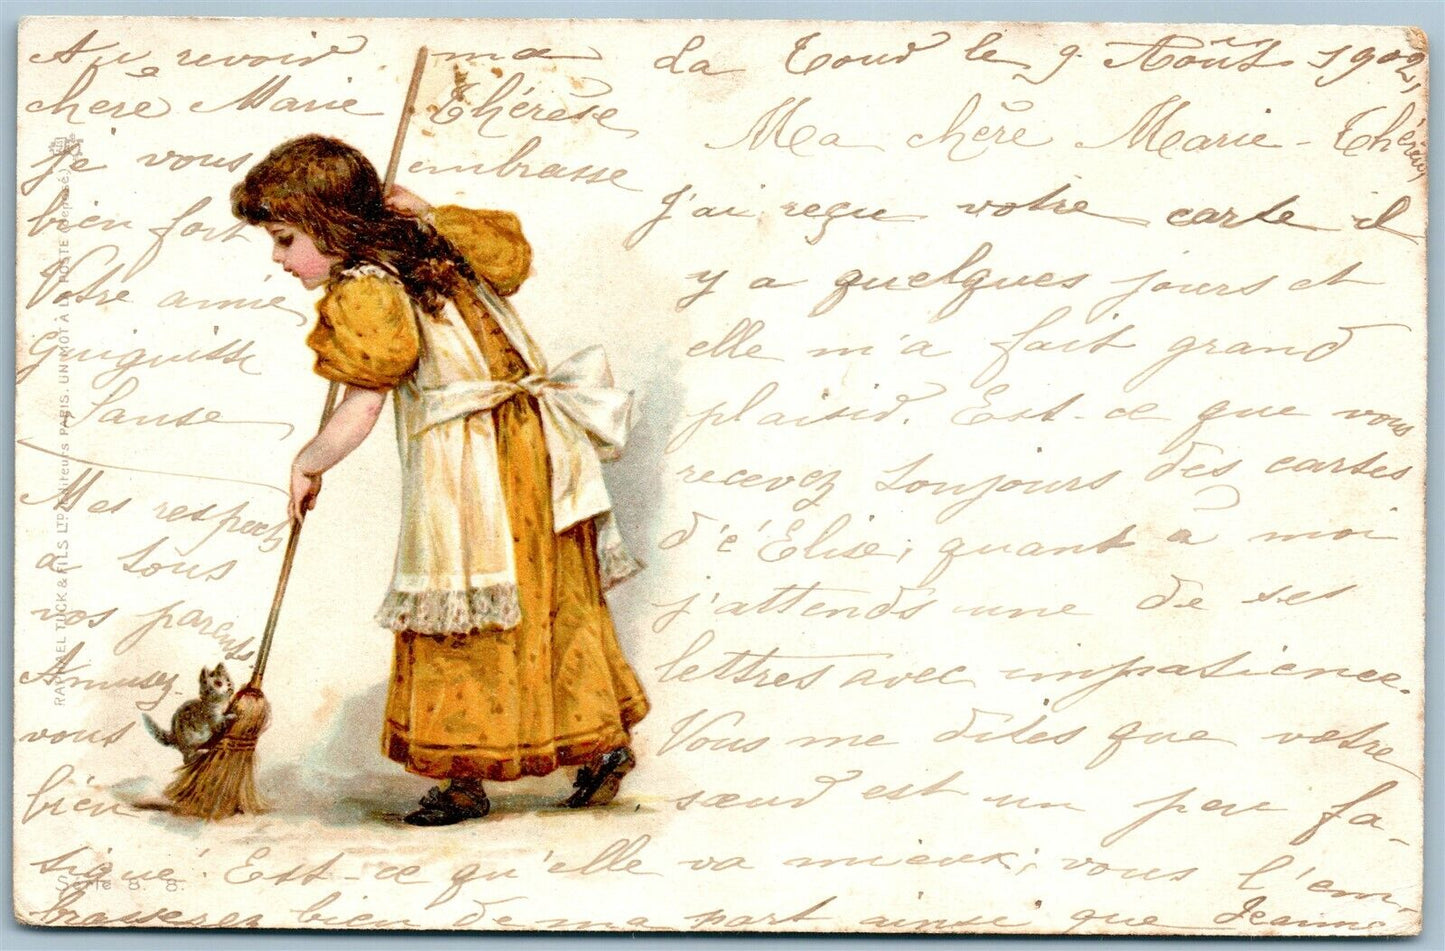 La Tour le 9 Août 1902
Ma chère Marie-Thérèse
J'ai reçu votre carte il
y a quelques jours et
elle m'a fait grand
plaisir. Est-ce que vous
recevez toujours des cartes
d'é Elise, quant à moi
j'attends une de ses
lettres avec impatience.
Vous me dites que votre
sœur est un peu fa-
tigué. Est-ce qu'elle va mieux, vous l'em-
brasserez bien de ma part ainsi que Jeanne
Au revoir ma
chère Marie Thérèse
je vous embrasse
bien fort
Votre amie
Mes respects
à tous
vos parents
Amusez-
vous
bien
RAPHAEL TUCK & FILS LTD Editeurs PARIS. UN MOT A LA POSTE (Déposé)
Serie 8. 8.